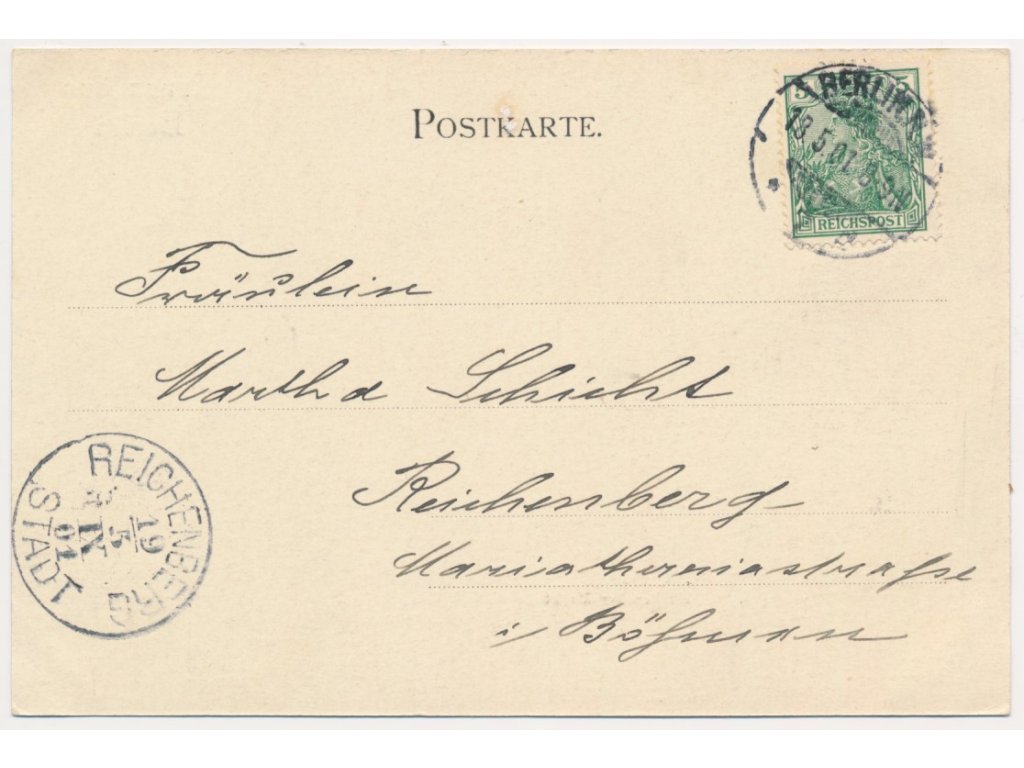 POSTKARTE.
5 5
BERLIN
18.5.01.
REICHSPOST
Fräulein
Martha Schicht
Reichenberg
Mariatheresiastraße
i/ Böhmen
REICHENBERG
19
5
IX
01
STADT